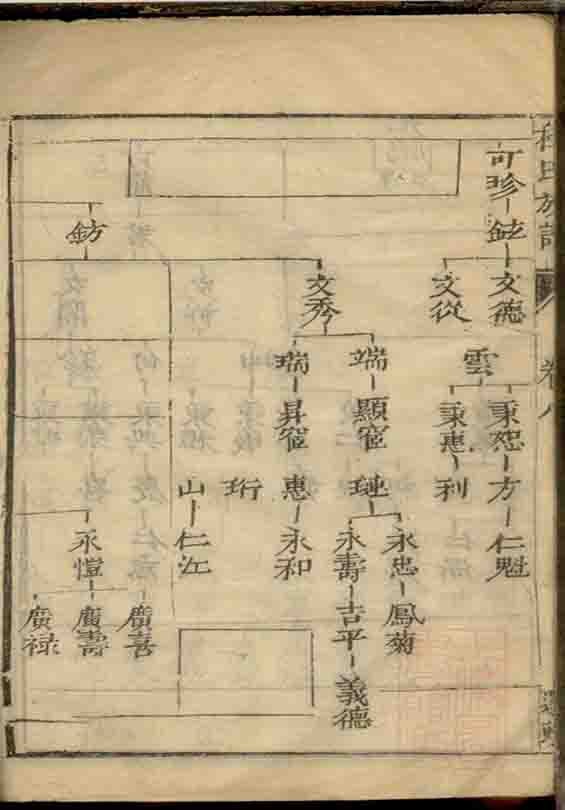 程氏族譜
卷八
可珍 鉉 文德
秉恕 方 仁魁
文從 雲
秉惠 利
永忠 鳳菊
文秀
端 顯宦 璉
永壽 吉平 義德
瑞 昇宦 惠 永和
珩
山 仁江
鈁
廣喜
永愷 廣壽
廣祿